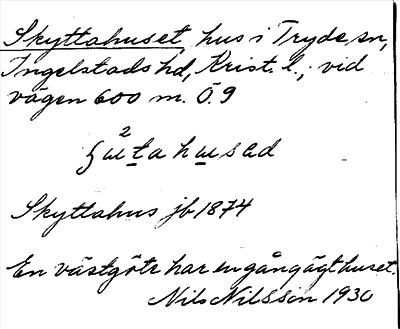 Skyttahuset, hus i Tryde sn,
Ingelstads hd, Krist. l., vid
vägen 600 m. Ö. 9
Skyttahus jb 1874
En västgöte har en gång ägt huset.
Nils Nilsson 1930